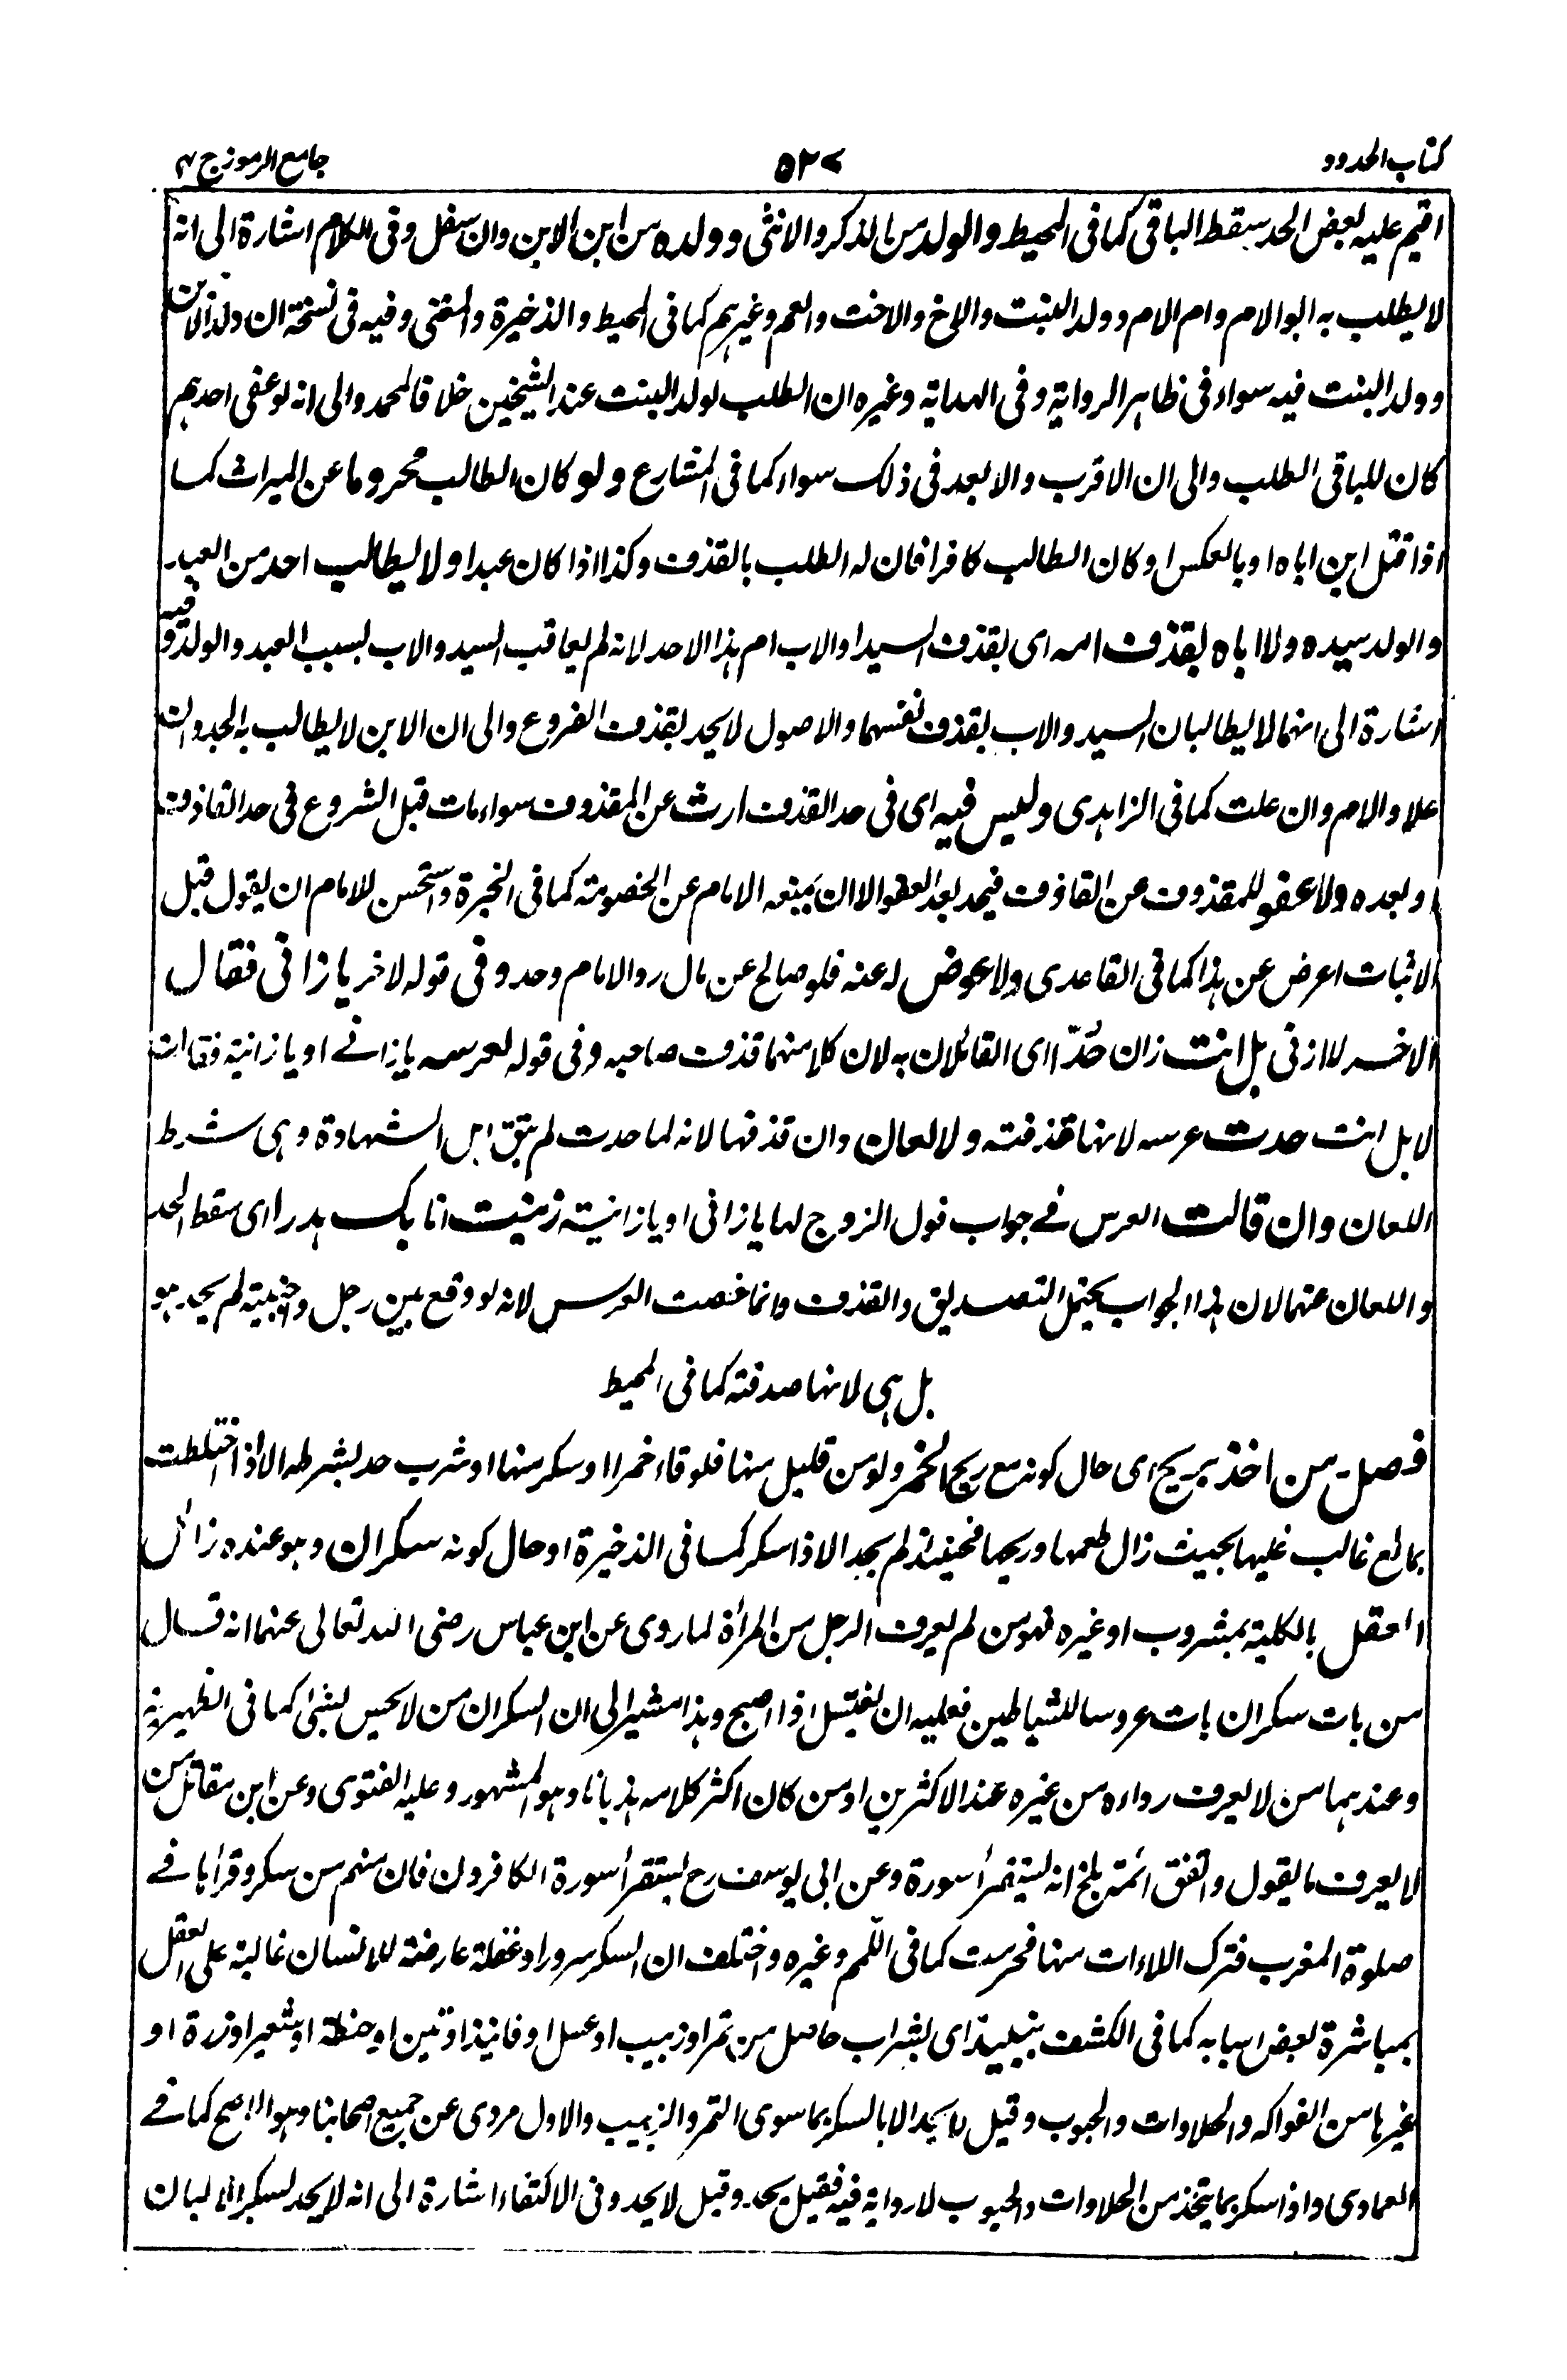 كتاب الحدود
۵۲۷
جامع الرموز ج ۴
اقيم عليه بعض الحد سقط الباقى كما فى المحيط والولد من الذكر والانثى وولده من ابن الابن وان سفل وفى الكلام اشارة الى انه
لا يطلب به ابو الام وام الام وولد البنت والاخ والاخت والعم وغيرهم كما فى المحيط والذخيرة والمغنى وفيه فى نسخة ان ولد الابن
وولد البنت فيه سواء فى ظاهر الرواية وفى الهداية وغيره ان الطلب لولد البنت عند الشيخين خلافا لمحمد والى انه لو عفى احدهم
كان للباقى الطلب والى ان الاقرب والابعد فى ذلك سواء كما فى المشارع ولو كان الطالب محروما عن الميراث كما
اذا قتل ابن اباه او بالعكس او كان الطالب كافرا فان له الطلب بالقذف وكذا اذا كان عبدا ولا يطالب احد من العبد
والولد سيده ولا اباه بقذف امه اى بقذف السيد او الاب ام هذا الاحد لانه لم يعاقب السيد والاب بسبب العبد والولد وفيه
اشارة الى انهما لا يطالبان السيد والاب بقذف نفسهما والاصول لا يحد بقذف الفروع والى ان الابن لا يطالب به الجد وان
علا والام وان علت كما فى الزاهدى وليس فيه اى فى حد القذف ارث عن المقذوف سواء مات قبل الشروع فى حد القاذف
او بعده ولا عفو للمقذوف عن القاذف فيحد بعد العفو الا ان يمنعه الامام عن الخصومة كما فى الخيرة واستحسن للامام ان يقول قبل
الاثبات اعرض عن هذا كما فى القاعدى ولا عوض له عنه فلو صالح عن مال رد الامام وحد وفى قوله لاخر يا زانى فقال
الاخر لا ازنى بل انت زان حُدّا اى القائلان به لان كلا منهما قذف صاحبه وفى قوله لعرسه يا زانے او يا زانية فقالت
لا بل انت حدت عرسه لانها قذفته ولا لعان وان قذفها لانه لما حدت لم تبق اهل الشهادة وهى شرط
اللعان وان قالت العرس فے جواب قول الزوج لها يا زانى او يا زانية زنيت انا بك هدرا اى سقط الحد
واللعان عنهما لان هذا الجواب يحتمل التصديق والقذف وانما خصت العرس لانه لو وقع بين رجل واجنبية لم يحد هو
بل هى لانها صدقته كما فى المحيط
فصل۔ من اخذ بريح اى حال كونه مع ريح الخمر ولو من قليل منها فلو قاء خمرا او سكر منها او شرب حد بشرطه الا اذا اختلطت
بمائع غالب عليها بحيث زال طعمها وريحها فحينئذ لم يحد الا اذا سكر كما فى الذخيرة او حال كونه سكران وهو عنده زائل
العقل بالكلية بمشروب او غيره فهو من لم يعرف الرجل من المرأة لما روى عن ابن عباس رضى الله تعالى عنهما انه قال
من بات سكران بات عروسا للشياطين فعليه ان يغتسل اذا اصبح وهذا مشير الى ان السكران من لا يحس بشئ كما فى الظهيرية
وعندهما من لا يعرف رداءه من غيره عند الاكثرين او من كان اكثر كلامه هذيانا وهو المشهور وعليه الفتوى وعن ابن مقاتل من
لا يعرف ما يقول واتفق ائمة بلخ انه يستقرأ سورة وعن ابى يوسف رح يستقرأ سورة الكافرون فان منهم من سكر وقرأها فے
صلوة المغرب فترك اللاءات منها فحرمت كما فى اللمم وغيره واختلف ان السكر سرور او غفلة عارضة للانسان غالبة على العقل
بمباشرة بعض اسبابه كما فى الكشف بنبيذ اى بشراب حاصل من تمر او زبيب او عسل او فانيذ او تين او حنطة او شعير او ذرة او
غيرها من الفواكه والحلاوات والحبوب وقيل لا يحد الا بالسكر بما سوى التمر والزبيب والاول مروى عن جميع اصحابنا وهو الاصح كما فے
العمادى واذا سكر بما يتخذ من الحلاوات والحبوب لا رواية فيه فقيل يحد وقيل لا يحد وفى الاكتفاء اشارة الى انه لا يحد لسكر البان